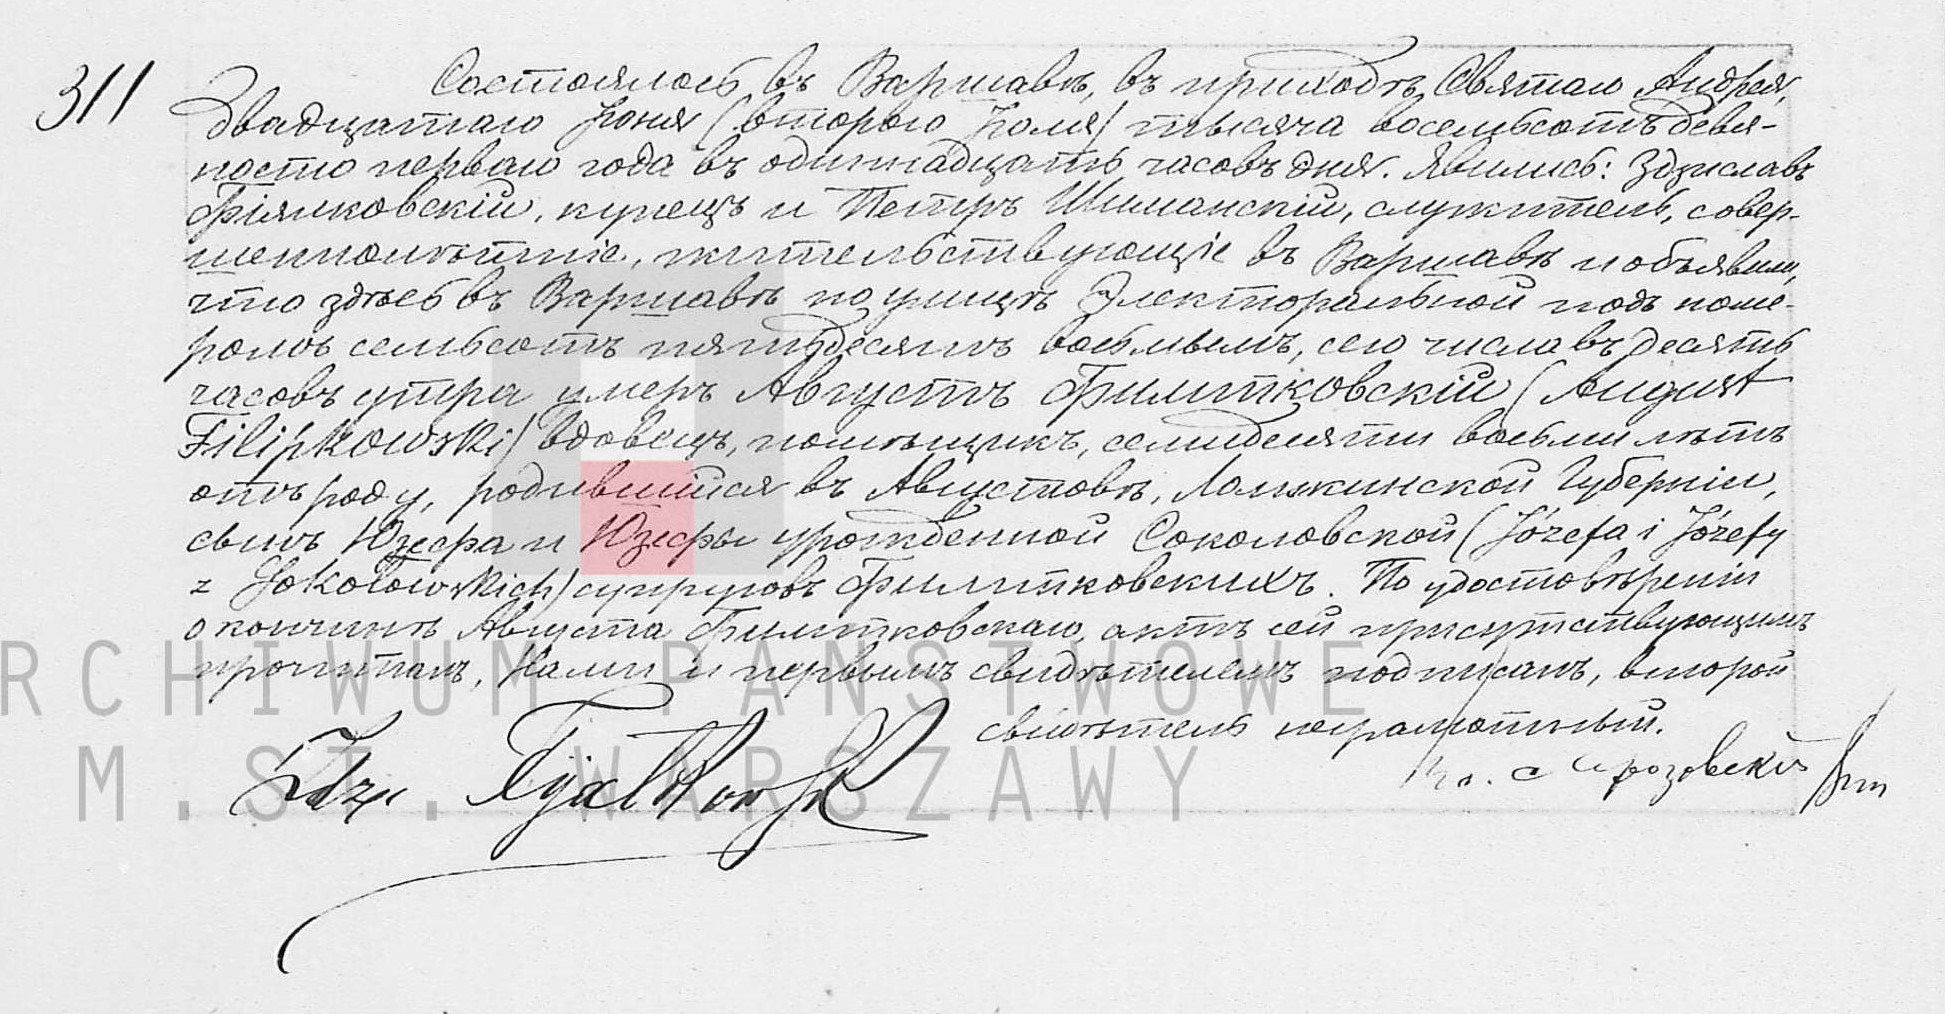 311
Состоялось въ Варшавѣ, въ приходѣ Святаго Андрея,
двадцатаго Іюня (втораго Іюля) тысяча восемьсотъ девя-
носто перваго года въ одиннадцать часовъ дня. Явились: Здзиславъ
Фіялковскій, купецъ и Петръ Шиманскій, служитель, совер-
шеннолѣтніе, жительствующіе въ Варшавѣ и объявили,
что здѣсь въ Варшавѣ по улицѣ Электоральной подъ номе-
ромъ семьсотъ пятьдесятъ восьмымъ, сего числа въ десять
часовъ утра умеръ Августъ Филипковскій (August
Filipkowski) вдовецъ, помѣщикъ, семидесяти восьми лѣтъ
отъ роду, родившійся въ Августовѣ, Ломжинской Губерніи,
сынъ Юзефа и Юзефы урожденной Соколовской (Józefa i Józefy
z Sokołowskich) супруговъ Филипковскихъ. По удостовѣреніи
о кончинѣ Августа Филипковскаго, актъ сей присутствующимъ
прочитанъ, Нами и первымъ свидѣтелемъ подписанъ, второй
свидѣтель неграмотный.
ARCHIWUM PAŃSTWOWE
M.ST. WARSZAWY